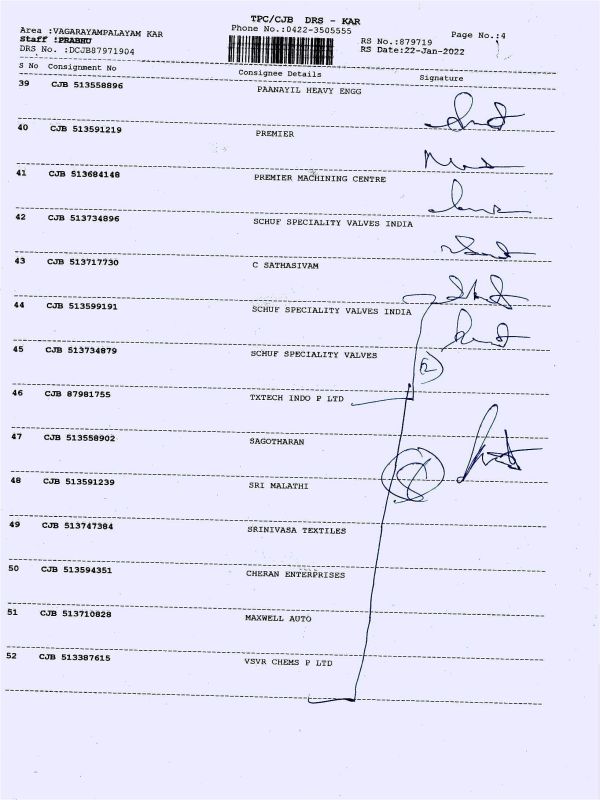 TPC/CJB DRS - KAR
Area :VAGARAYAMPALAYAM KAR Phone No.:0422-3505555 Page No.:4
Staff :PRABHU RS No.:879719
DRS No. :DCJB87971904 RS Date:22-Jan-2022
S No Consignment No Consignee Details Signature
39 CJB 513558896 PAANAYIL HEAVY ENGG
40 CJB 513591219 PREMIER
41 CJB 513684148 PREMIER MACHINING CENTRE
42 CJB 513734896 SCHUF SPECIALITY VALVES INDIA
43 CJB 513717730 C SATHASIVAM
44 CJB 513599191 SCHUF SPECIALITY VALVES INDIA
45 CJB 513734879 SCHUF SPECIALITY VALVES
46 CJB 87981755 TXTECH INDO P LTD
47 CJB 513558902 SAGOTHARAN
48 CJB 513591239 SRI MALATHI
49 CJB 513747384 SRINIVASA TEXTILES
50 CJB 513594351 CHERAN ENTERPRISES
51 CJB 513710828 MAXWELL AUTO
52 CJB 513387615 VSVR CHEMS P LTD